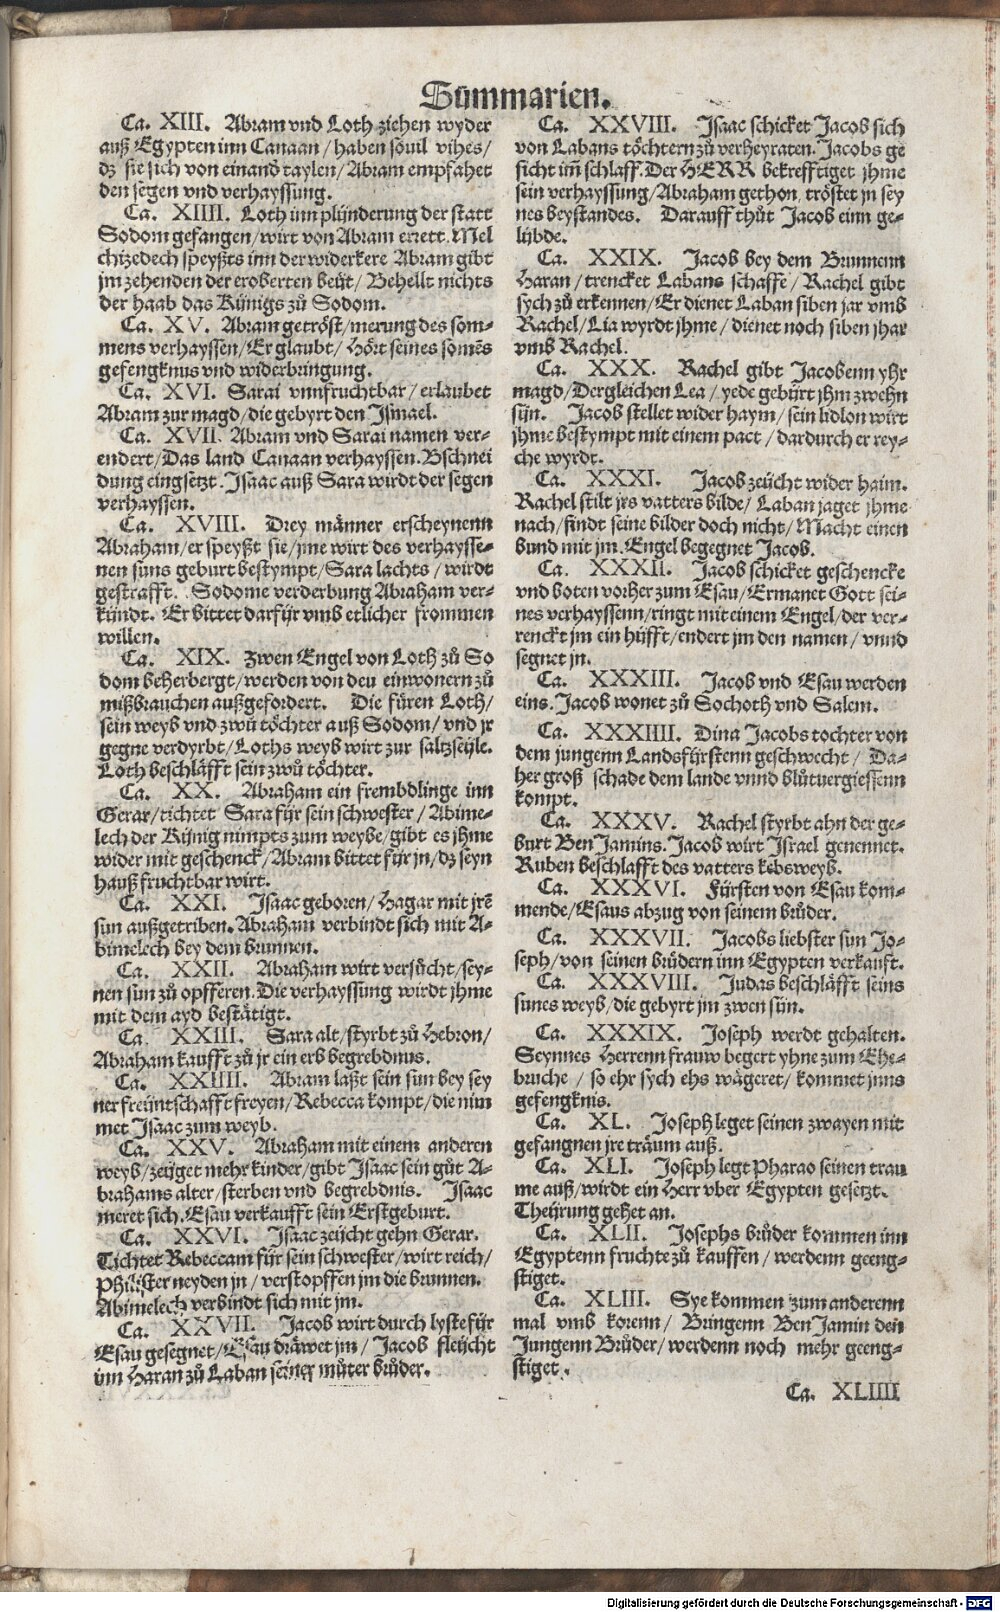 Summarien.
Ca. XIII. Abram vnd Loth ziehen wyder
auß Egypten inn Canaan / haben souil vihes /
dz sie sich von einand taylen / Abram empfahet
den segen vnd verhayssung.
Ca. XIIII. Loth inn plünderung der statt
Sodom gefangen / wirt von Abram errett. Mel
chizedech speyßts inn der widerkere Abram gibt
jm zehenden der eroberten beüt / Behellt nichts
der haab das Künigs zů Sodom.
Ca. XV. Abram getröst / merung des som-
mens verhayssen / Er glaubt / Hört seines somẽs
gefengknus vnd widerbringung.
Ca. XVI. Sarai vnnfruchtbar / erlaubet
Abram zur magd / die gebyrt den Ismael.
Ca. XVII. Abram vnd Sarai namen ver-
endert / Das land Canaan verhayssen. Bschnei
dung eingsetzt. Isaac auß Sara wirdt der segen
verhayssen.
Ca. XVIII. Drey männer erscheynenn
Abraham / er speyßt sie / jme wirt des verhaysse-
nen suns geburt bestympt / Sara lachts / wirdt
gestrafft. Sodome verderbung Abraham ver-
kündt. Er bittet darfür vmb etlicher frommen
willen.
Ca. XIX. Zwen Engel von Loth zů So
dom beherbergt / werden von den einwonern zů
mißbrauchen außgefordert. Die füren Loth /
sein weyb vnd zwů töchter auß Sodom / vnd jr
gegne verdyrbt / Loths weyb wirt zur saltzseüle.
Loth beschläfft sein zwů töchter.
Ca. XX. Abraham ein frembdlinge inn
Gerar / tichtet Sara für sein schwester / Abime-
lech der Künig nimpts zum weybe / gibt es jhme
wider mit geschenck / Abram bittet für jn / dz seyn
hauß fruchtbar wirt.
Ca. XXI. Isaac geboren / Hagar mit jrẽ
sun außgetriben. Abraham verbindt sich mit A-
bimelech bey dem brunnen.
Ca. XXII. Abraham wirt versůcht / sey-
nen sun zů opfferen. Die verhayssung wirdt jhme
mit dem ayd bestätigt.
Ca. XXIII. Sara alt / styrbt zů Hebron /
Abraham kaufft zů jr ein erb begrebdnus.
Ca. XXIIII. Abram laßt sein sun bey sey
ner freüntschafft freyen / Rebecca kompt / die nim
met Isaac zum weyb.
Ca. XXV. Abraham mit einem anderen
weyb / zeüget mehr kinder / gibt Isaac sein gůt A-
brahams alter / sterben vnd begrebdnis. Isaac
meret sich. Esau verkaufft sein Erstgeburt.
Ca. XXVI. Isaac zeücht gehn Gerar.
Tichtet Rebeccam für sein schwester / wirt reich /
Philister neyden jn / verstopffen jm die brunnen.
Abimelech verbindt sich mit jm.
Ca. XXVII. Jacob wirt durch lyste für
Esau gesegnet / Esau dräwet jm / Jacob fleücht
inn Haran zů Laban seiner můter brůder.
Ca. XXVIII. Isaac schicket Jacob sich
von Labans töchtern zů verheyraten. Jacobs ge
sicht im schlaff. Der HERR bekrefftiget jhme
sein verhayssung / Abraham gethon, tröstet jn sey
nes beystandes. Darauff thůt Jacob einn ge-
lübde.
Ca. XXIX. Jacob bey dem Brunnenn
Haran / trencket Labans schaffe / Rachel gibt
sych zů erkennen / Er dienet Laban siben jar vmb
Rachel / Lia wyrdt jhme / dienet noch siben jhar
vmb Rachel.
Ca. XXX. Rachel gibt Jacobenn yhr
magd / Dergleichen Lea / yede gebürt jhm zwehn
sün. Jacob stellet wider haym / sein lidlon wirt
jhme bestympt mit einem pact / dardurch er rey-
che wyrdt.
Ca. XXXI. Jacob zeücht wider haim.
Rachel stilt jrs vatters bilde / Laban jaget jhme
nach / findt seine bilder doch nicht / Macht einen
bund mit jm. Engel begegnet Jacob.
Ca. XXXII. Jacob schicket geschencke
vnd boten vorher zum Esau / Ermanet Gott sei-
nes verhayssenn / ringt mit einem Engel / der ver-
renckt jm ein hüfft / endert jm den namen / vnnd
segnet jn.
Ca. XXXIII. Jacob vnd Esau werden
eins. Jacob wonet zů Sochoth vnd Salem.
Ca. XXXIIII. Dina Jacobs tochter von
dem jungenn Landsfürstenn geschwecht / Da-
her groß schade dem lande vnnd blůtuergiessenn
kompt.
Ca. XXXV. Rachel styrbt ahn der ge-
burt Ben Jamins. Jacob wirt Israel genennet.
Ruben beschlafft des vatters kebsweyb.
Ca. XXXVI. Fürsten von Esau kom-
mende / Esaus abzug von seinem brůder.
Ca. XXXVII. Jacobs liebster sun Jo-
seph / von seinen brüdern inn Egypten verkauft.
Ca. XXXVIII. Judas beschläfft seins
sunes weyb / die gebyrt jm zwen sün.
Ca. XXXIX. Joseph werdt gehalten.
Seynnes Herrenn frauw begert yhne zum Ehe-
bruche / so ehr sych ehs wägeret / kommet jnns
gefengknis.
Ca. XL. Joseph leget seinen zwayen mit
gefangnen jre träum auß.
Ca. XLI. Joseph legt Pharao seinen trau
me auß / wirdt ein Herr vber Egypten gesetzt.
Theürung gehet an.
Ca. XLII. Josephs brůder kommen inn
Egyptenn fruchte zů kauffen / werdenn geeng-
stiget.
Ca. XLIII. Sye kommen zum anderenn
mal vmb korenn / Bringenn Ben Jamin den
Jungenn Brůder / werdenn noch mehr geeng-
stiget.
Ca. XLIIII
Digitalisierung gefördert durch die Deutsche Forschungsgemeinschaft - DFG